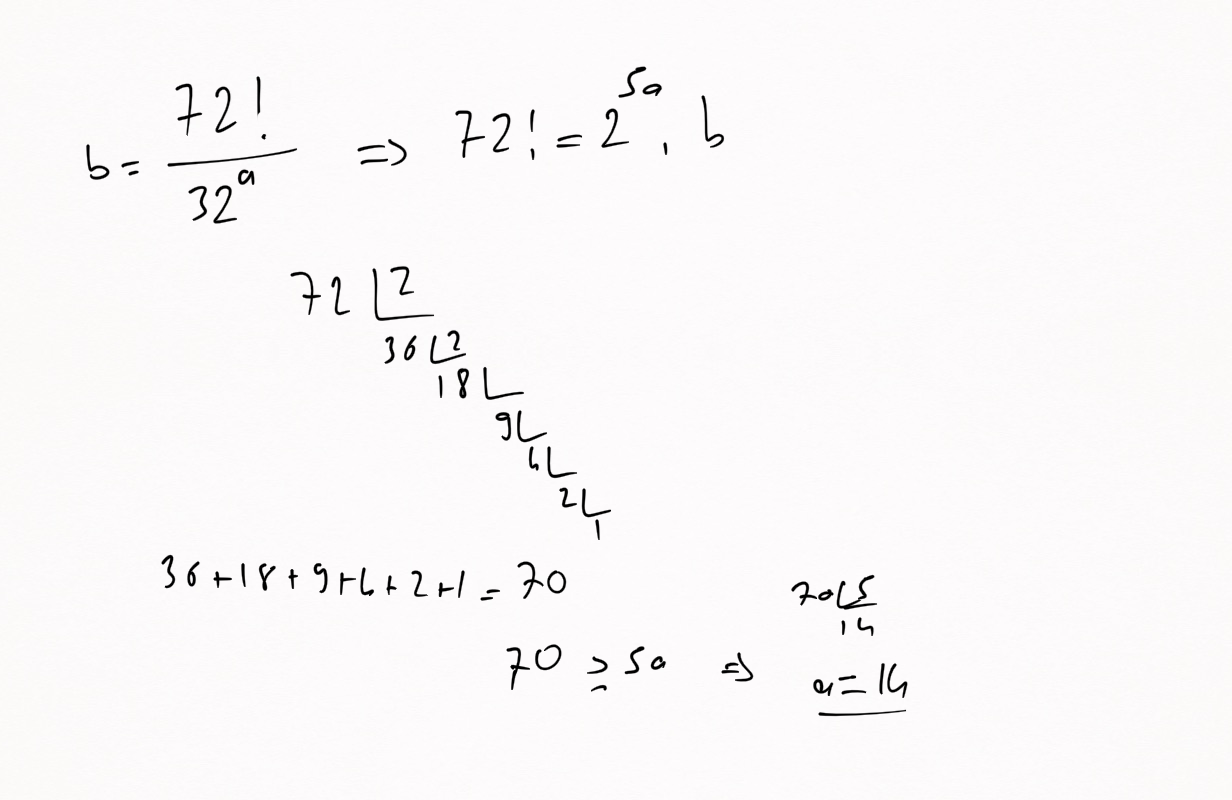 b = 72! / 32^a => 72! = 2^5a . b
72 | 2
36 | 2
18 |
9 |
4 |
2 |
1
36 + 18 + 9 + 4 + 2 + 1 = 70
70 | 5
14
70 ≥ 5a => a = 14